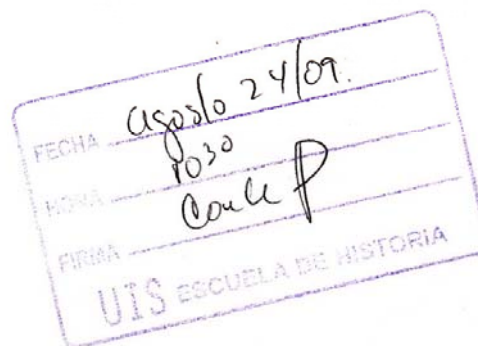 FECHA agosto 24/09.
HORA 10 30
FIRMA
UIS ESCUELA DE HISTORIA